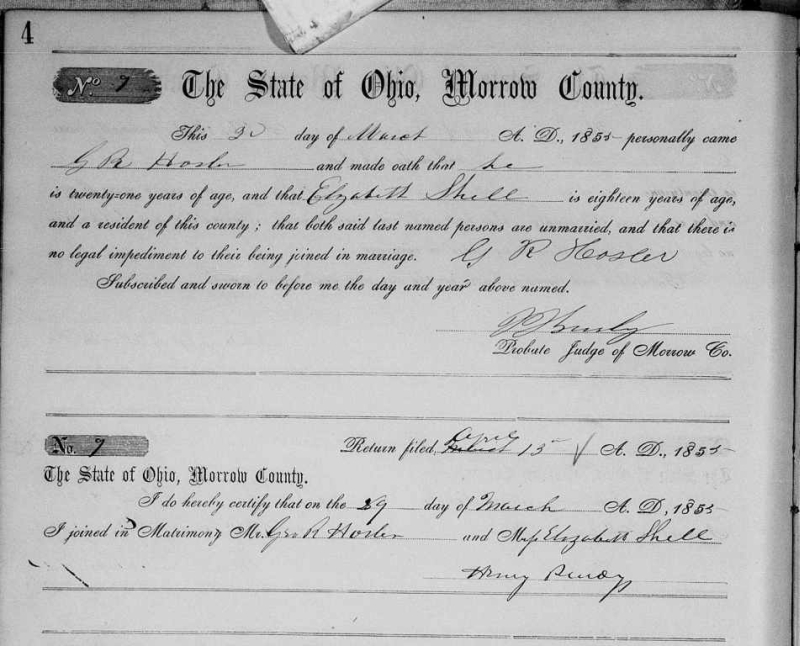 4
No 7 The State of Ohio, Morrow County.
This day of March A. D., 1855 personally came
G R Hosler and made oath that he
is twenty-one years of age, and that Elizabeth Shell is eighteen years of age,
and a resident of this county; that both said last named persons are unmarried, and that there is
no legal impediment to their being joined in marriage. G R Hosler
Subscribed and sworn to before me the day and year above named.
Probate Judge of Morrow Co.
No. 7 Return filed, April 15 A. D., 1855
The State of Ohio, Morrow County.
I do hereby certify that on the 29 day of March A. D., 1855
I joined in Matrimony Mr. Geo R Hosler and Miss Elizabeth Shell
Henry